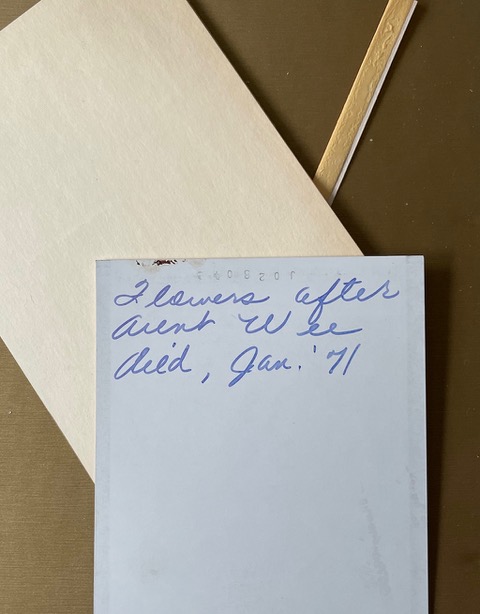 Flowers after
Aunt Wee
died, Jan. '71